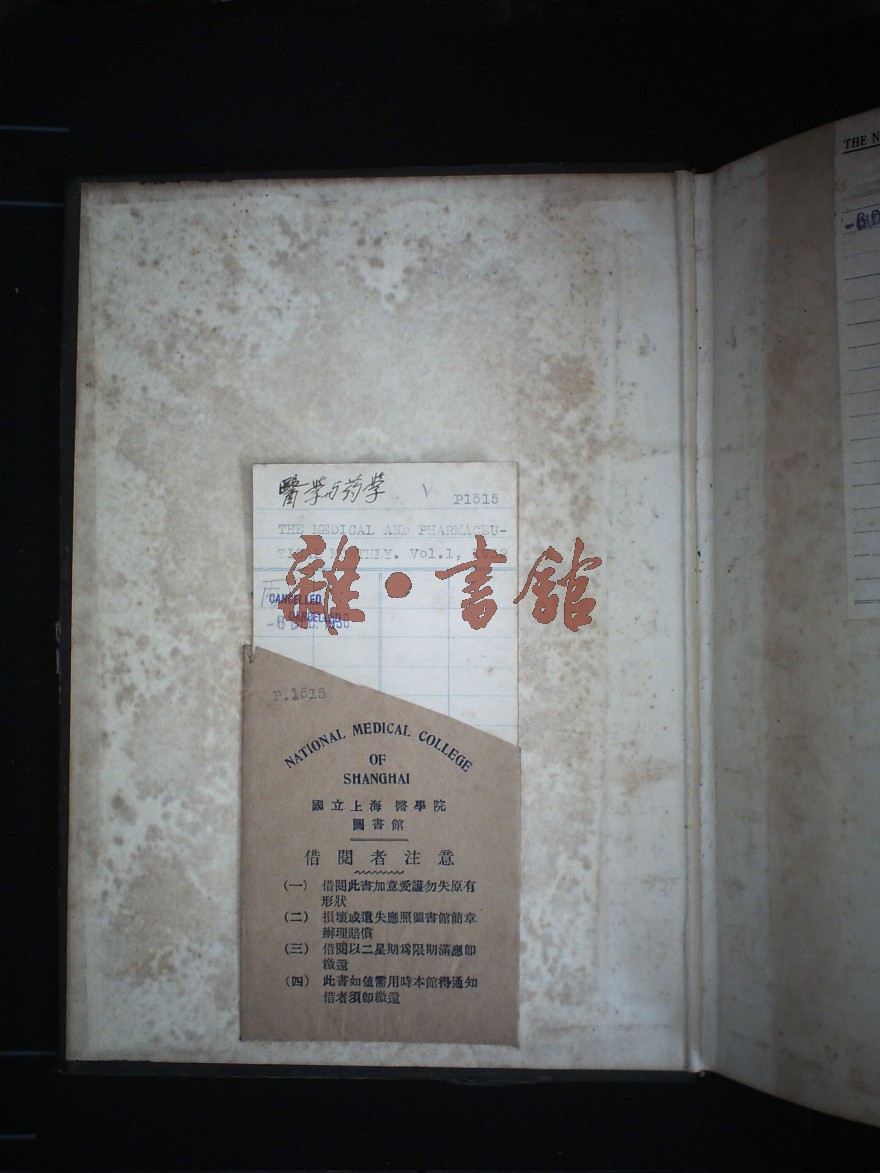 醫学与药学 V P1515
THE MEDICAL AND PHARMACEU-
MONTHLY. Vol.1,
雜·書館
CANCELLED
CANCELLED
P.1515
NATIONAL MEDICAL COLLEGE
OF
SHANGHAI
國立上海醫學院
圖書館
借閱者注意
(一) 借閱此書加意愛護勿失原有
形狀
(二) 損壞或遺失應照圖書館簡章
辦理賠償
(三) 借閱以二星期爲限期滿應卽
繳還
(四) 此書如値需用時本館得通知
借者須卽繳還
THE N